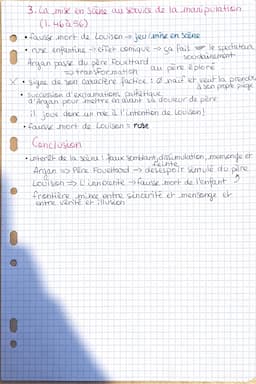 3. La mise en scène au service de la manipulation
(l. 46 à 56)
• fausse mort de Louison → jeu/mise en scène
• ruse enfantine → effet comique → ça fait rire le spectateur
soudainement
Argan passe du père Fouettard au père éploré
⇒ transformation
X • signe de son caractère factice : Ø naïf et veut la prendre
à son propre piège
• succession d'exclamations pathétique
d'Argan pour mettre en avant sa douleur de père
il joue donc un rôle à l'intention de Louison!
• fausse mort de Louison = ruse
Conclusion
• intérêt de la scène : faux semblant, dissimulation, mensonge et
feinte
Argan ⇒ Père Fouettard → désespoir simulé du père
Louison ⇒ L'innocente → fausse mort de l'enfant
frontière mince entre sincérité et mensonge et
entre vérité et illusion